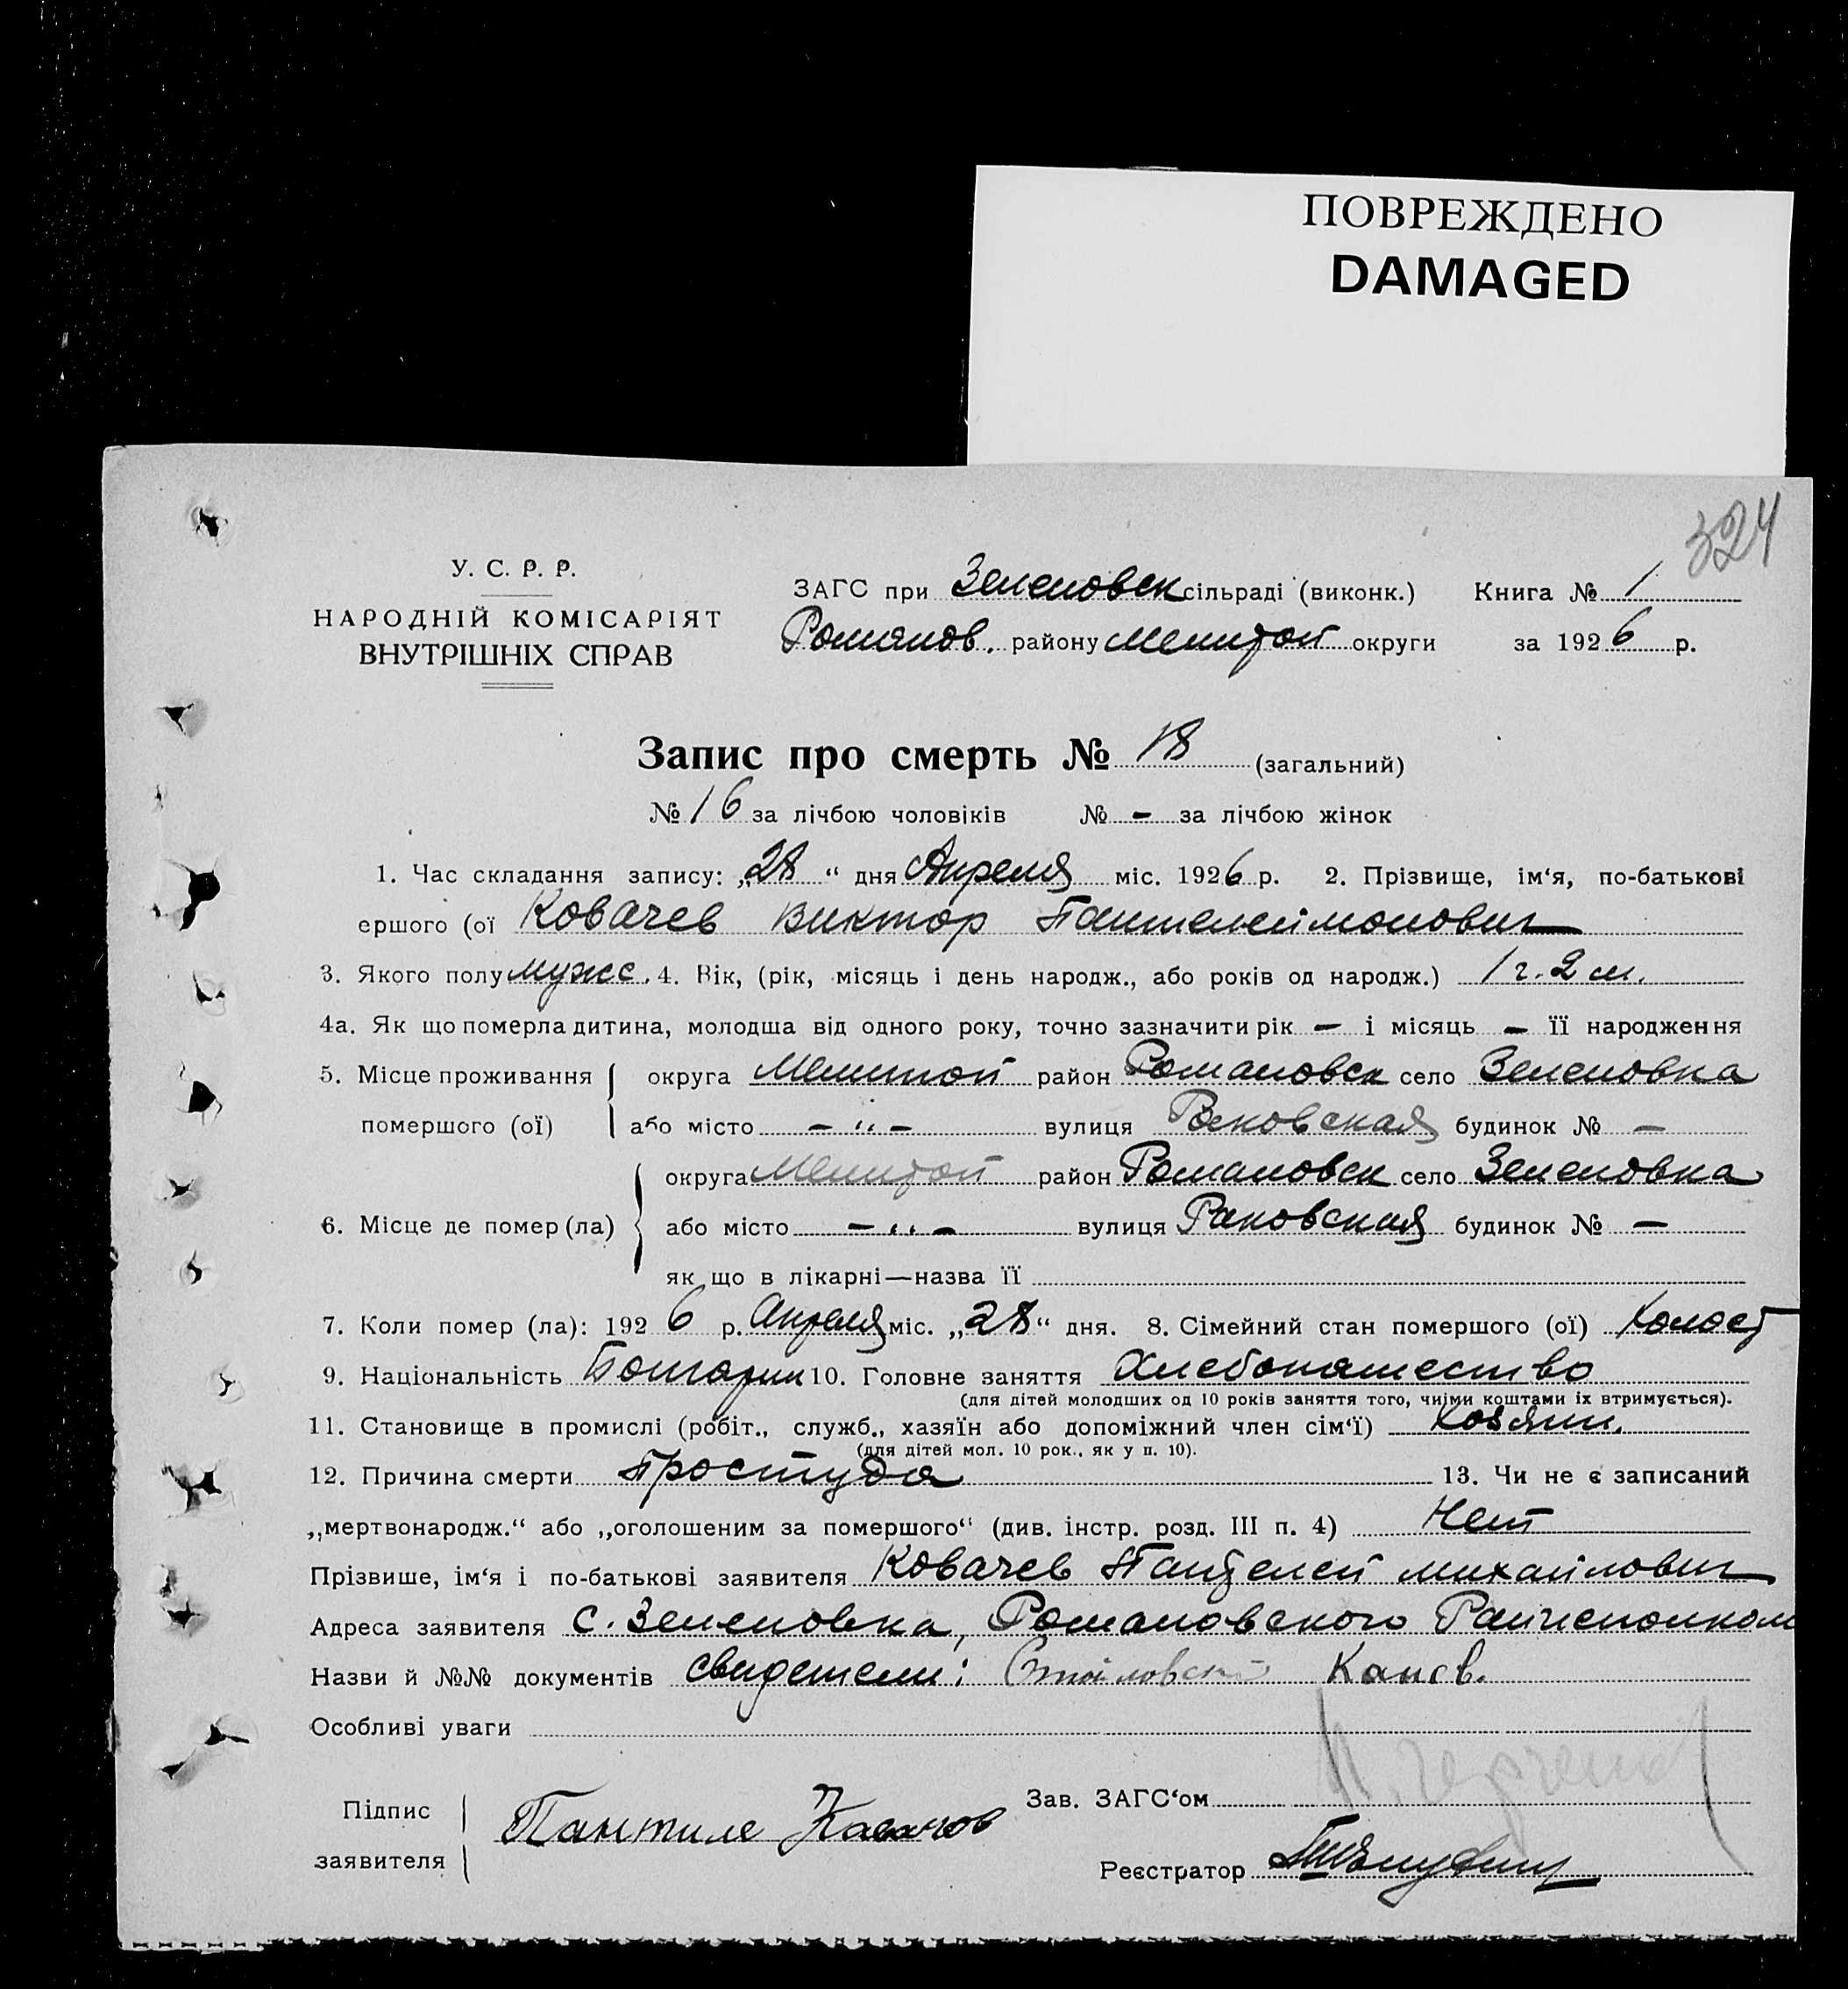 ПОВРЕЖДЕНО
DAMAGED
324
У. С. Р. Р.
НАРОДНІЙ КОМІСАРІЯТ
ВНУТРІШНІХ СПРАВ
ЗАГС при Зеленовск сільраді (виконк.) Книга № 1
Романов. району Мелитоп округи за 1926 р.
Запис про смерть № 18 (загальний)
№ 16 за лічбою чоловіків № - за лічбою жінок
1. Час складання запису: „28 “ дня Апреля міс. 1926 р. 2. Прізвище, ім‘я, по-батькові
ершого (ої Ковачев Виктор Пантелеймонович
3. Якого полу мужс. 4. Вік, (рік, місяць і день народж., або років од народж.) 1 г. 2 м.
4а. Як що померла дитина, молодша від одного року, точно зазначити рік — і місяць — її народження
5. Місце проживання помершого (ої) округа Мелитоп район Романовск село Зеленовка
або місто - „ - вулиця Раковская будинок № —
6. Місце де помер (ла) округа Мелитоп район Романовск село Зеленовка
або місто - „ - вулиця Раковская будинок № —
як що в лікарні—назва її
7. Коли помер (ла): 1926 р. Апреля міс. „28“ дня. 8. Сімейний стан помершого (ої) Холост
9. Національність Болгарин 10. Головне заняття Хлебопашество
(для дітей молодших од 10 років заняття того, чиїми коштами їх втримується).
11. Становище в промислі (робіт., служб., хазяїн або допоміжний член сім‘ї) Хозяин.
(для дітей мол. 10 рок., як у п. 10).
12. Причина смерти Простуда 13. Чи не є записаний
„мертвонародж.“ або „оголошеним за помершого“ (див. інстр. розд. III п. 4) Нет
Прізвише, ім‘я і по-батькові заявителя Ковачев Пантелей Михайлович
Адреса заявителя с. Зеленовка, Романовского Райисполком
Назви й №№ документів свидетели: Канев.
Особливі уваги
Підпис заявителя Пантиле
Зав. ЗАГС‘ом
Реєстратор